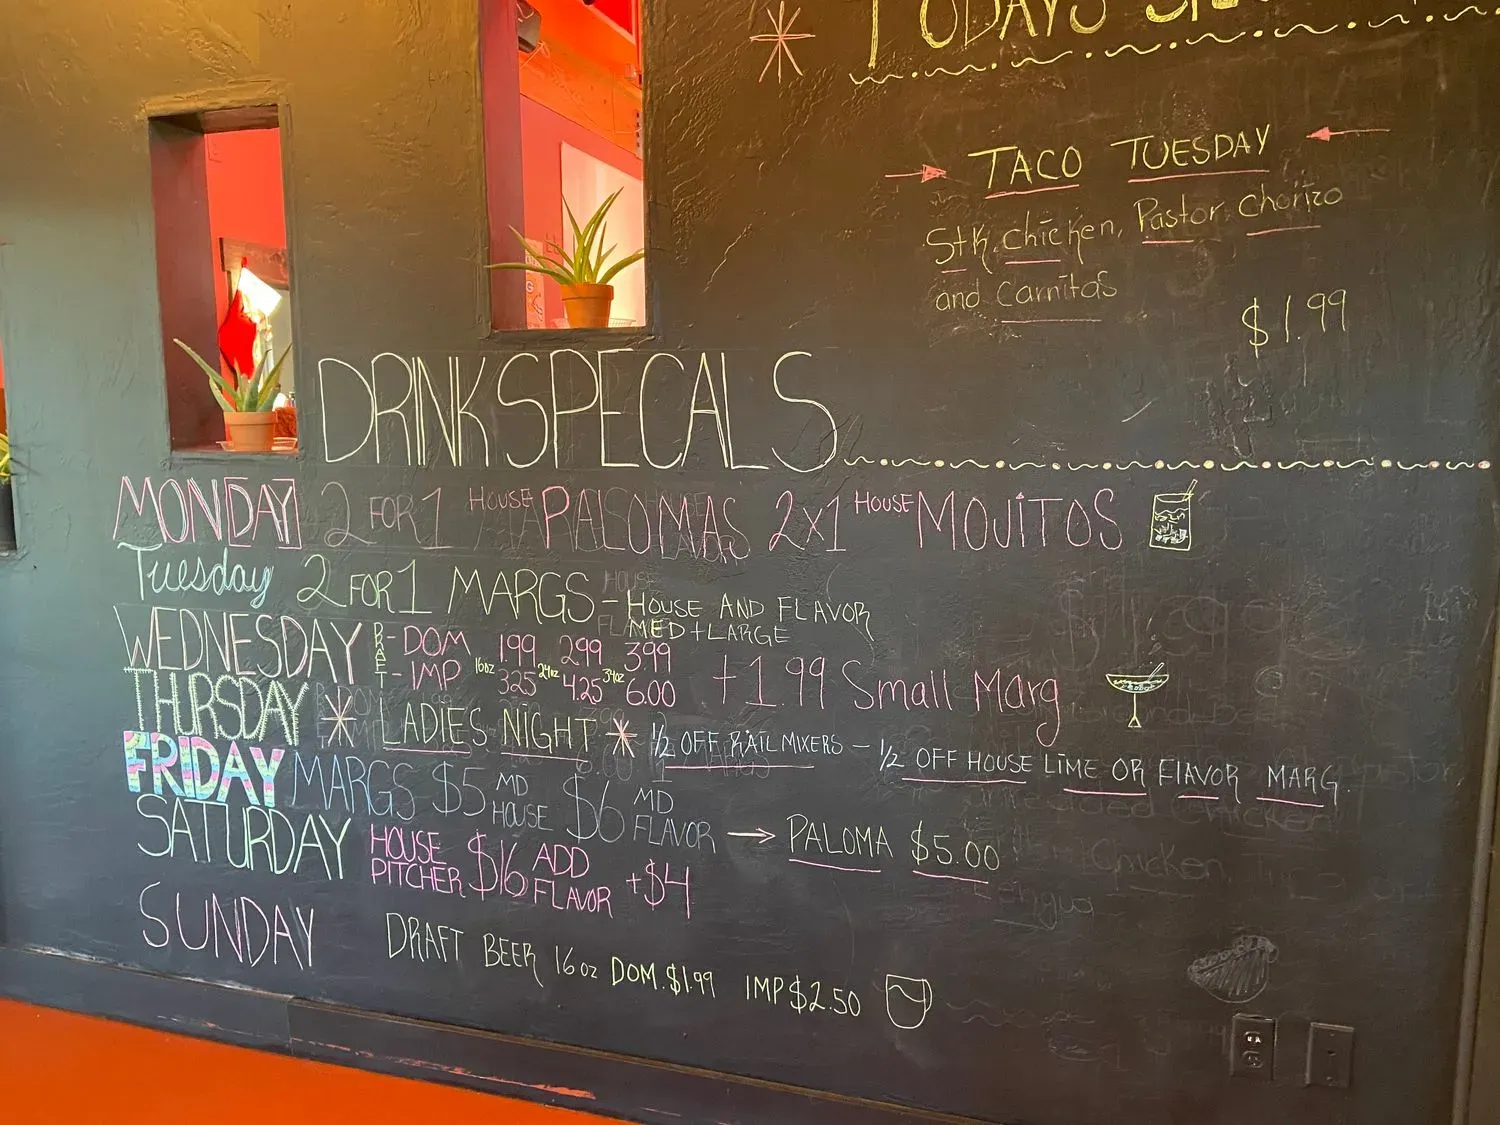 TODAYS
TACO TUESDAY
Stk, chicken, Pastor Chorizo
and Carnitas
$1.99
DRINK SPECALS
MONDAY 2 FOR 1 HOUSE PALOMAS 2x1 HOUSE MOJITOS
Tuesday 2 FOR 1 MARGS - HOUSE AND FLAVOR
MED + LARGE
WEDNESDAY DRAFT - DOM 1.99 299 399
- IMP 16oz 325 24oz 4.25 34oz 6.00 +1.99 Small Marg
THURSDAY LADIES NIGHT 1/2 OFF RAIL MIXERS - 1/2 OFF HOUSE LIME OR FLAVOR MARG.
FRIDAY MARGS $5 MD HOUSE $6 MD FLAVOR → PALOMA $5.00
SATURDAY HOUSE PITCHER $16 ADD FLAVOR +$4
SUNDAY DRAFT BEER 16oz DOM.$1.99 IMP $2.50